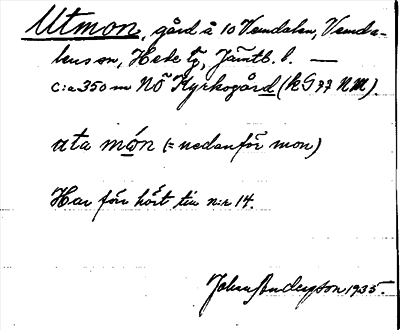 Utmon, gård å 10 Vemdalen, Vemda-
lens sn, Hede tg, Jämtl. l. —
C:a 350 m NÖ Kyrkogård (k G 77 NM).
uta món (= nedanför mon)
Har förr hört till n:r 14.
Johan Anderson 1935.